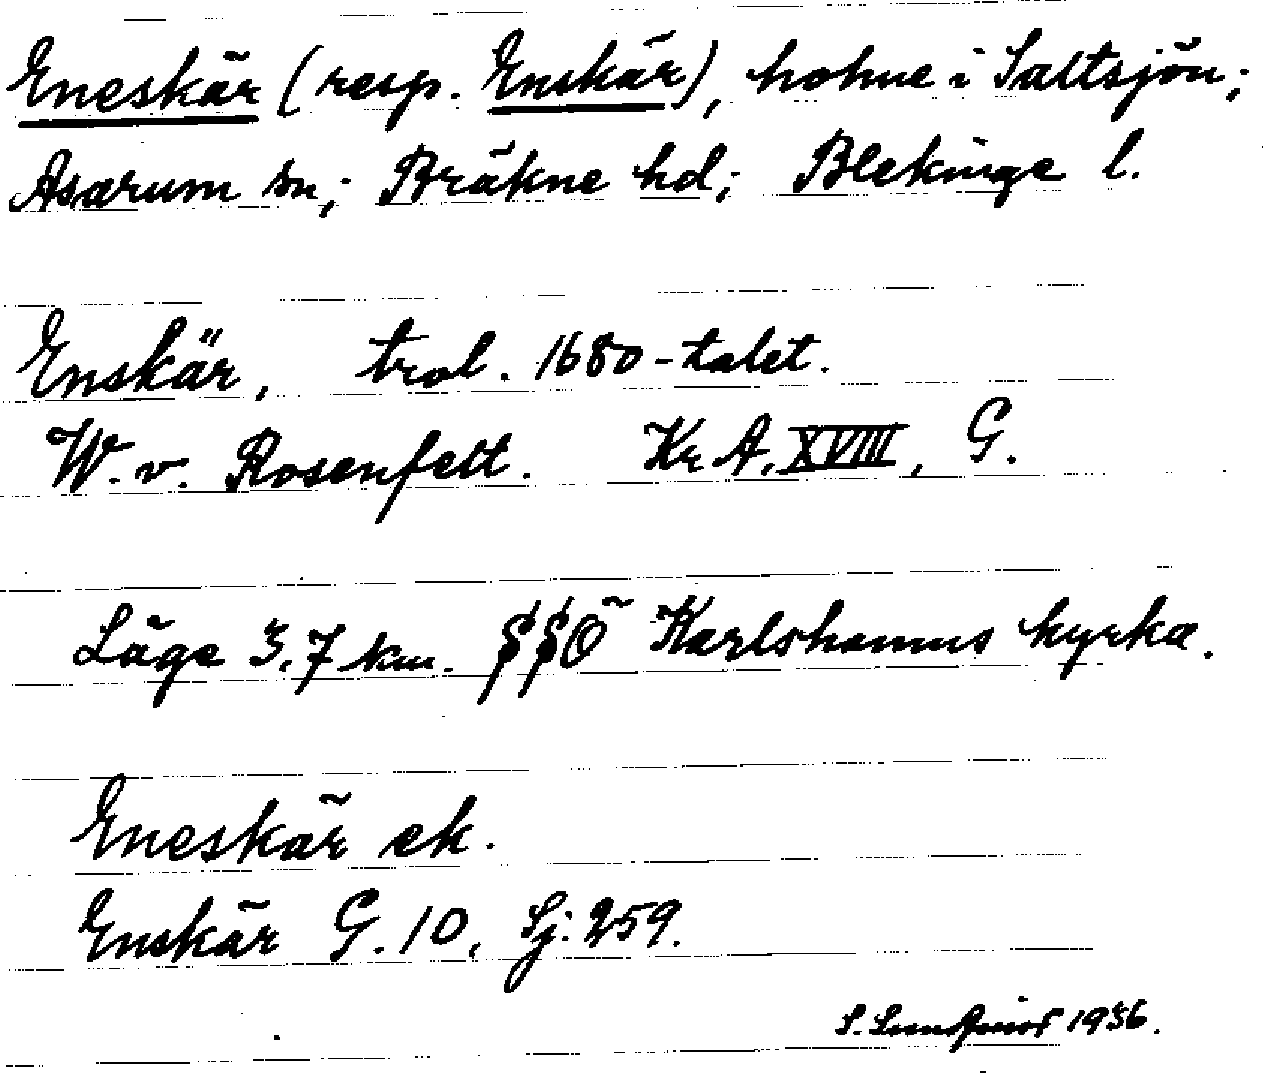 Eneskär (resp. Enskär), holme i Saltsjön;
Asarum sn; Bräkne hd; Blekinge l.
Enskär, trol. 1680-talet.
W. v. Rosenfelt. Kr A. XVIII, G.
Läge 3.7 km. SSÖ Karlshamns kyrka.
Eneskär ek.
Enskär G. 10, Sj: 259.
S. Lundqvist 1936.